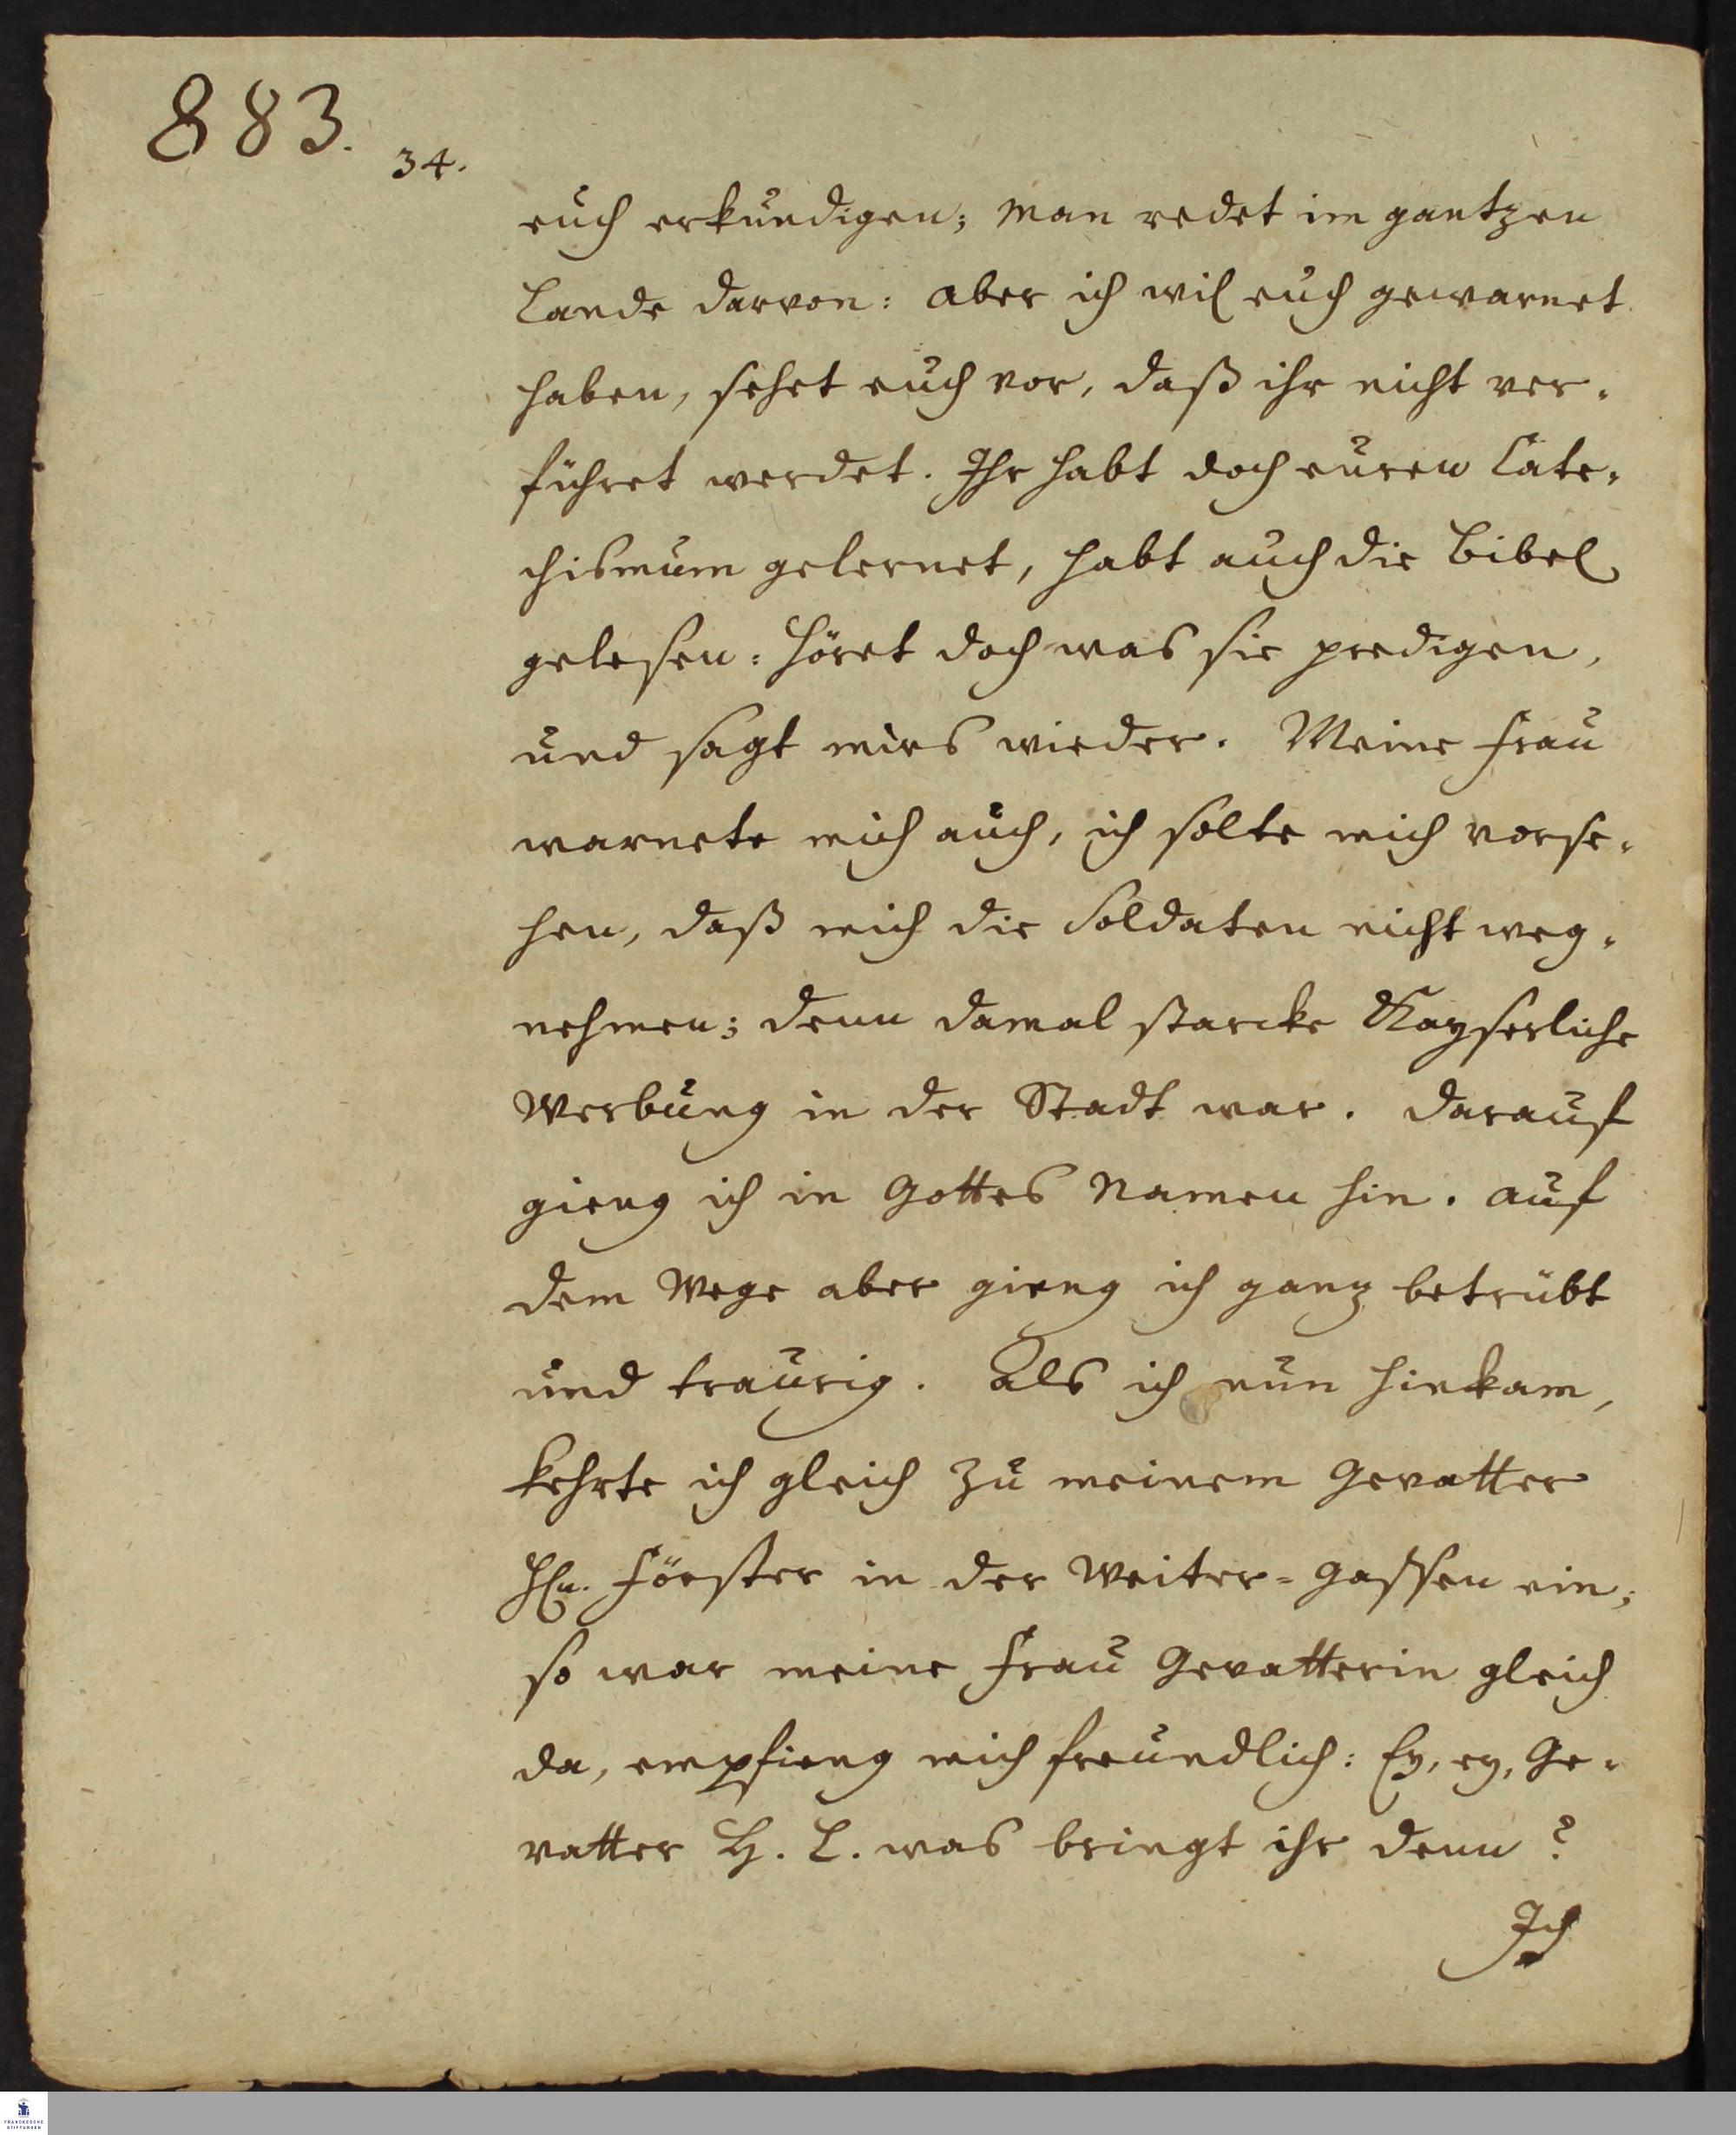 883.
34.
euch erkundigen; man redet im gantzen
Lande darvon: aber ich wil euch gewarnet
haben, sehet euch vor, daß ihr nicht ver-
führet werdet. Ihr habt doch euren Cate-
chismum gelernet, habt auch die Bibel
gelesen: höret doch was sie predigen,
und sagt mirs wieder. Meine Frau
warnete mich auch, ich solte mich vorse-
hen, daß mich die Soldaten nicht weg-
nehmen; denn damal starcke Kayserliche
Werbung in der Stadt war. Darauf
gieng ich in Gottes Namen hin. Auf
dem Wege aber gieng ich ganz betrübt
und traurig. Als ich nun hinkam,
kehrte ich gleich zu meinem Gevatter
Hn. Förster in der Weiter-Gassen ein;
so war meine Frau Gevatterin gleich
da, empfieng mich freundlich: Ey, ey, Ge-
vatter H. L. was bringt ihr denn?
Ich
FRANCKESCHE
STIFTUNGEN